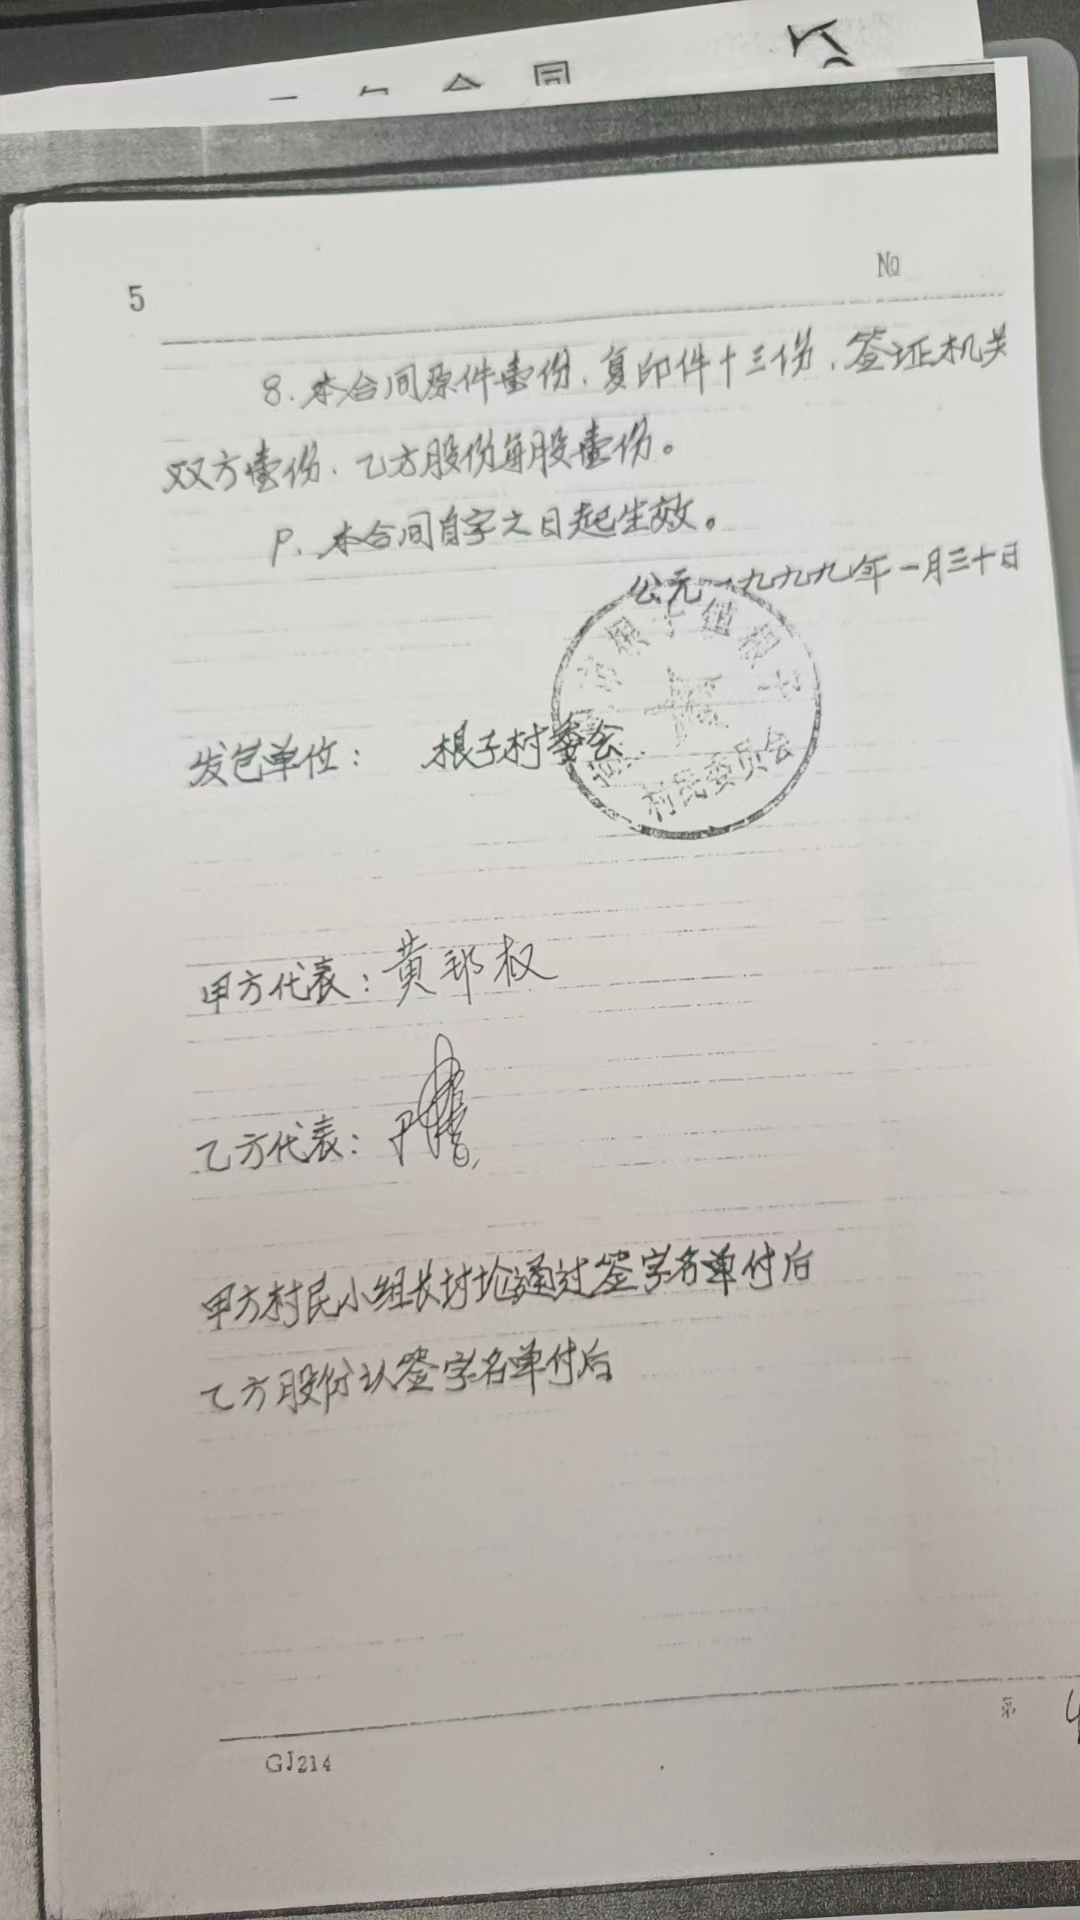 合同
5
№
8.本合同原件壹份、复印件十三份,签证机关
双方壹份、乙方股份每股壹份。
9、本合同自字之日起生效。
公元一九九九年一月三十日
根子
村民委员会
发包单位: 根子村委会
甲方代表:黄邦权
乙方代表:
甲方村民小组长讨论通过签字名单付后
乙方股份认签字名单付后
第 4
GJ214